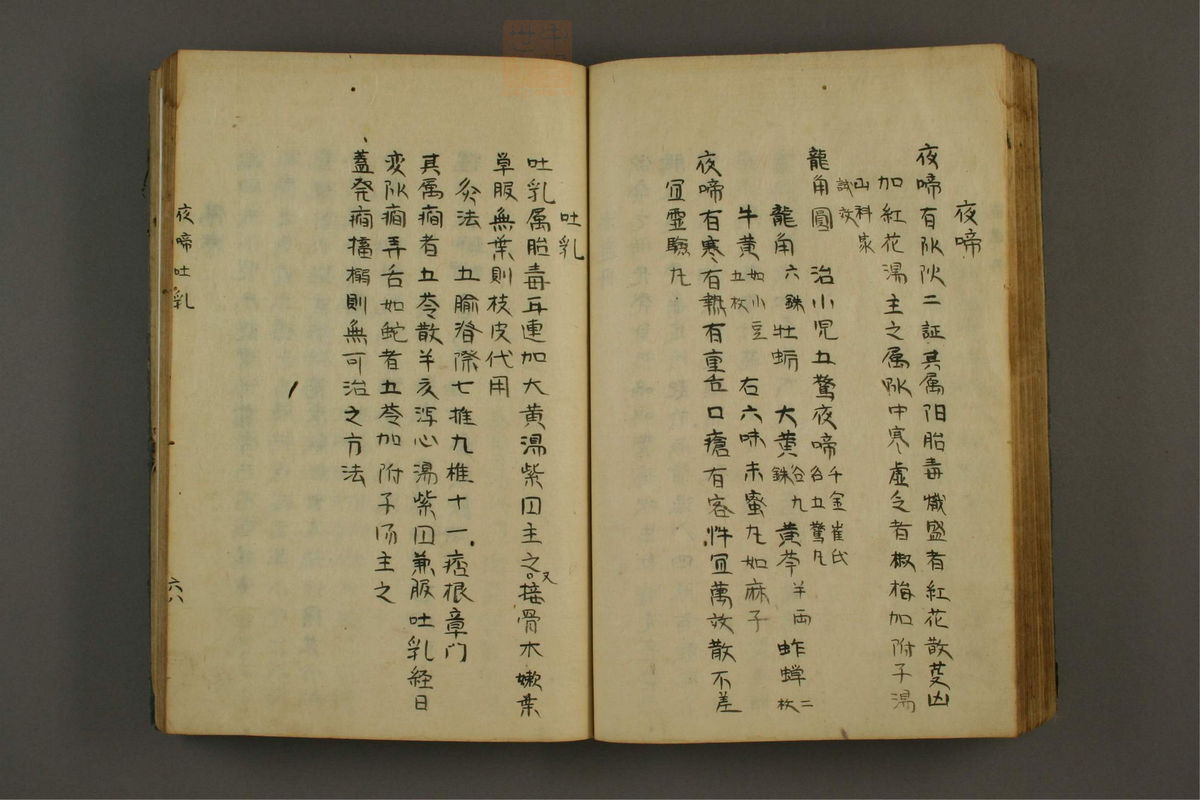 夜啼
夜啼有阦阥二証其属阳胎毒熾盛者紅花散芟凶
加紅花湯主之属阥中寒虚乏者椒梅加附子湯
山科家
試效
龍角圓 治小児五驚夜啼 千金崔氏名五驚丸
龍角六銖 牡蛎 大黄各九銖 黄芩半両 蚱蝉二枚
牛黄如小豆五枚 右六味末蜜丸如麻子
夜啼有寒有熱有重舌口瘡有客忤宜萬效散不差
宜霊驗丸
吐乳
吐乳属胎毒耳連加大黄湯紫円主之又接骨木嫩葉
草服無葉則枝皮代用
灸法 五腧脊際七椎九椎十一 痞根章门
其属癇者五苓散半夏泻心湯紫円兼服吐乳経日
変阥癇弄舌如蛇者五苓加附子湯主之
蓋発癇搐搦則無可治之方法
夜啼 吐乳
六八